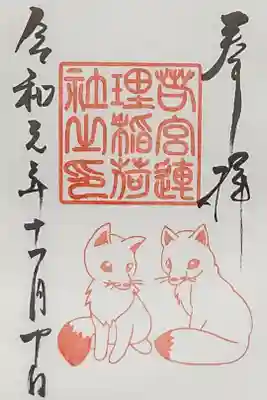 奉拝
若宮連
理稲荷
社之印
令和元年十一月日